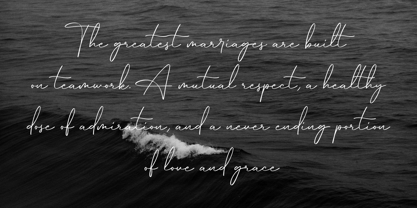 The greatest marriages are built
on teamwork. A mutual respect, a healthy
dose of admiration, and a never ending portion
of love and grace